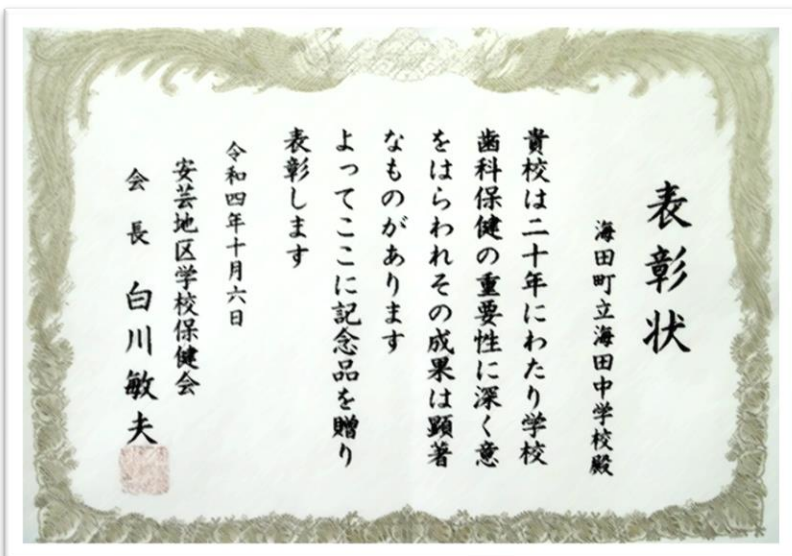 表彰状
海田町立海田中学校殿
貴校は二十年にわたり学校
歯科保健の重要性に深く意
をはらわれその成果は顕著
なものがあります
よってここに記念品を贈り
表彰します
令和四年十月六日
安芸地区学校保健会
会長 白川敏夫